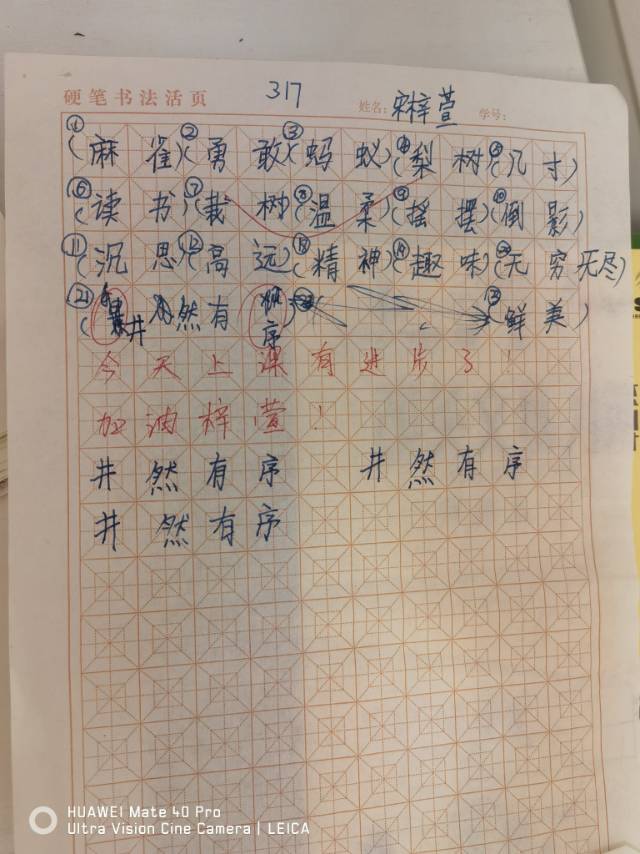 硬笔书法活页 317 姓名: 宋梓萱 学号:
①(麻雀)②(勇敢)③(蚂蚁)④(梨树)⑤(尺寸)
⑥(读书)⑦(栽树)⑧(温柔)⑨(摇摆)⑩(倒影)
⑪(沉思)⑫(高远)⑬(精神)⑭(趣味)(无穷无尽)
㉑(井然有序)(鲜美)
今天上课有进步了!
加油梓萱!
井然有序 井然有序
井然有序
HUAWEI Mate 40 Pro
Ultra Vision Cine Camera | LEICA